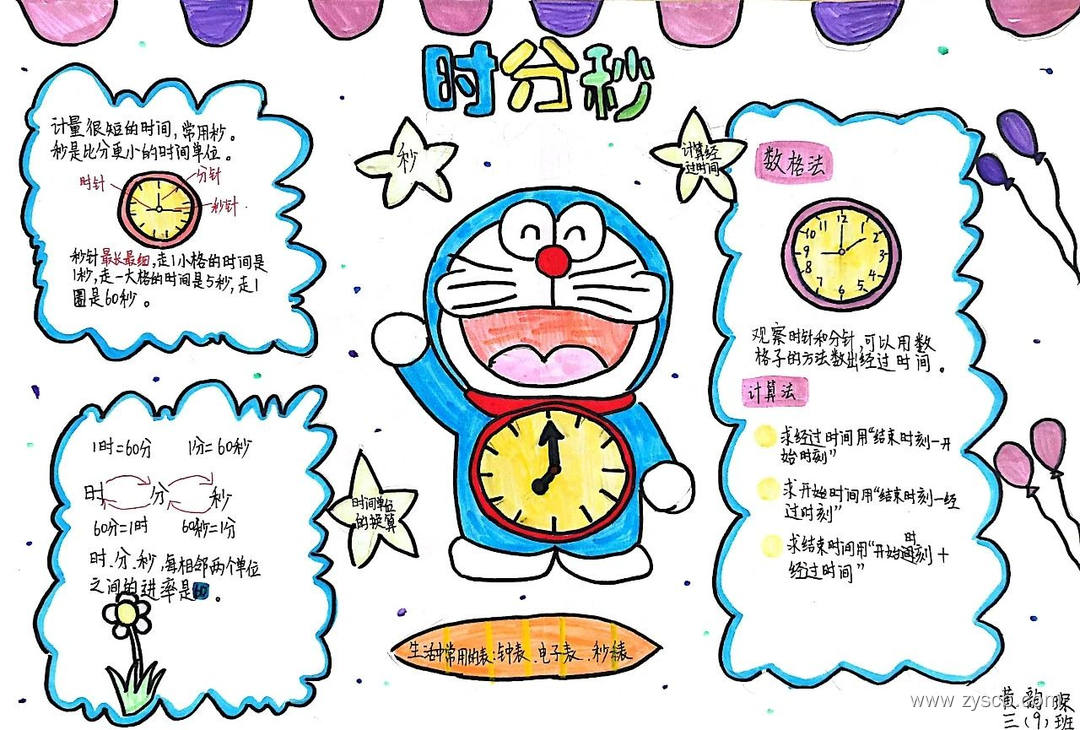 时分秒
计量很短的时间,常用秒。
秒是比分更小的时间单位。
时针
分针
秒针
秒针最长最细,走1小格的时间是
1秒,走一大格的时间是5秒,走1
圈是60秒。
秒
计算经
过时间
数格法
12
1
2
3
4
5
6
7
8
9
10
11
观察时针和分针,可以用数
格子的方法数出经过时间。
计算法
求经过时间用“结束时刻-开
始时刻”
求开始时间用“结束时刻-经
过时刻”
求结束时间用“开始时刻+
经过时间”
1时=60分 1分=60秒
时 分 秒
60分=1时 60秒=1分
时、分、秒,每相邻两个单位
之间的进率是60。
时间单位
的换算
生活中常用的表:钟表、电子表、秒表
www.zysc
黄韵
三(9)班